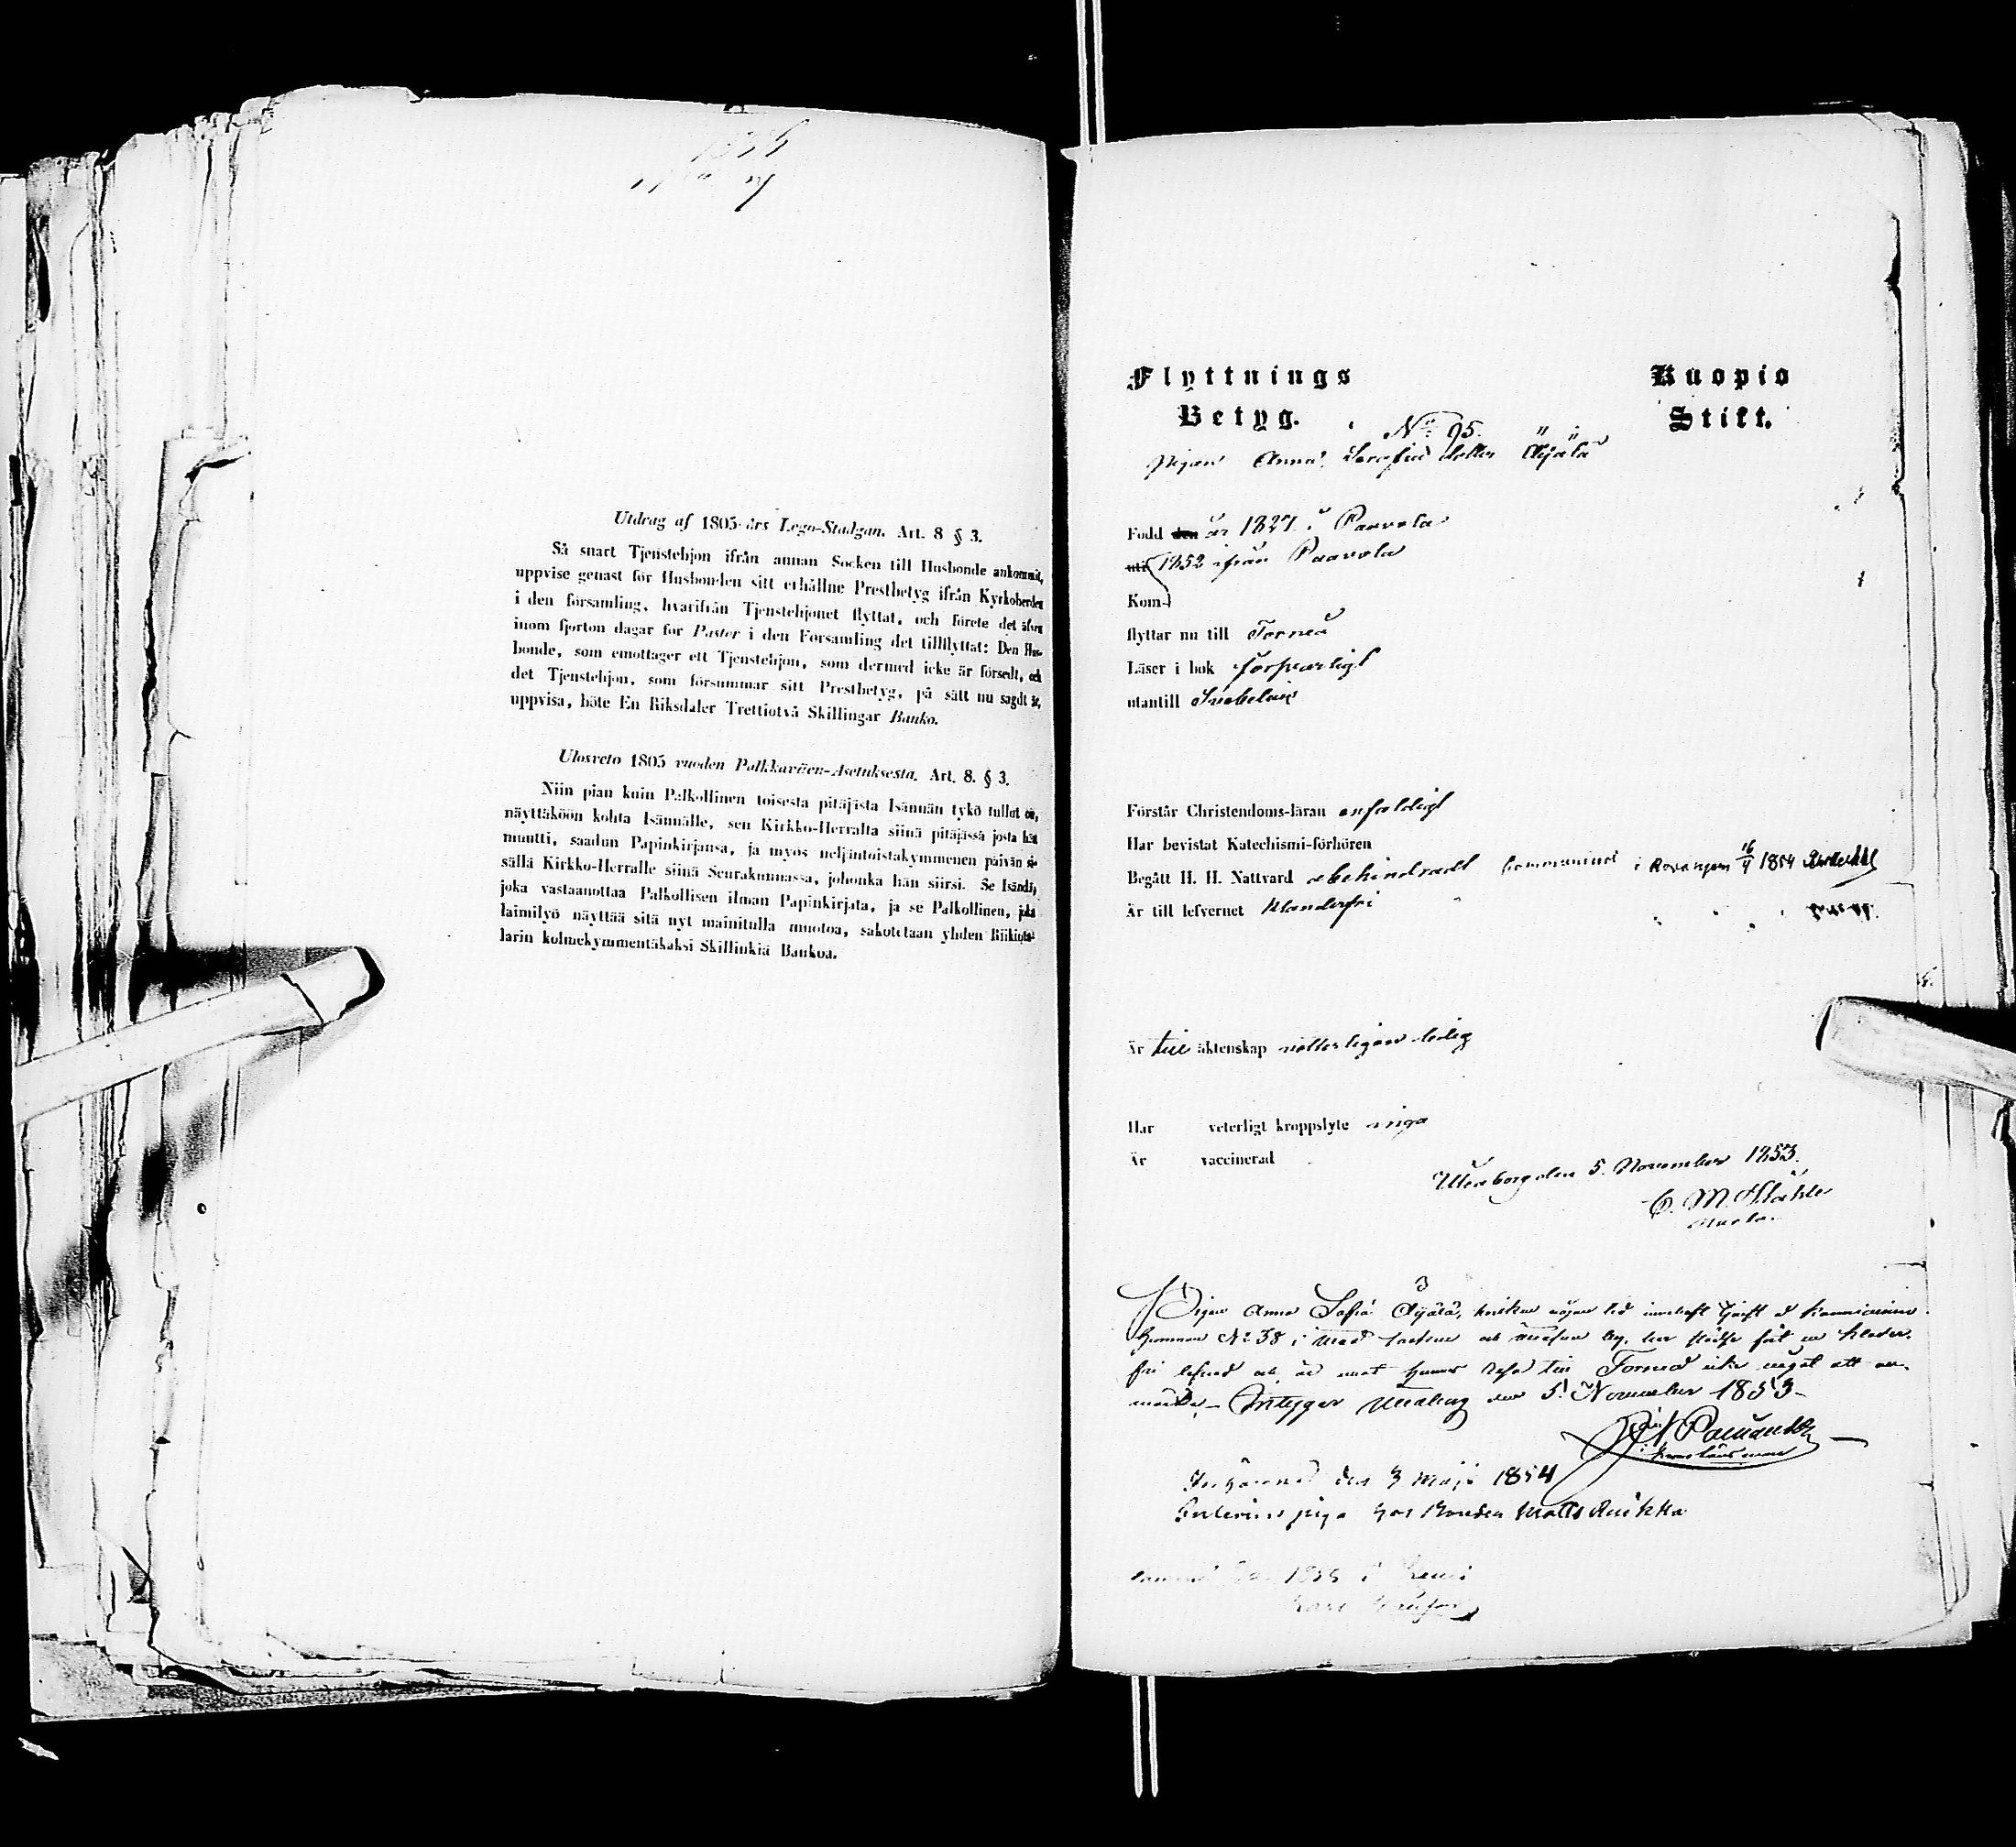 Utdrag af 1805 års Lego-Stadgan. Art. 8 § 3.
Så snart Tjenstehjon ifrån annan Socken till Husbonde ankommit,
uppvise genast för Husbonden sitt erhållne Prestbetyg ifrån Kyrkoherden
i den församling, hvarifrån Tjenstehjonet flyttat, och förete det äfven
inom fjorton dagar for Pastor i den Forsamling det tillflyttat: Den Hus-
bonde, som emottager ett Tjenstehjon, som dermed icke är försedt, och
det Tjenstehjon, som försummar sitt Prestbetyg, på sätt nu sagdt är,
uppvisa, böte En Riksdaler Trettiotvå Skillingar Banko.
Ulosveto 1805 vuoden Palkkaväen-Asetuksesta. Art. 8. § 3.
Niin pian kuin Palkollinen toisesta pitäjästa Isännän tykö tullut on,
näyttäköön kohta Isännälle, sen Kirkko-Herralta siinä pitäjässä josta hän
muutti, saadun Papinkirjansa, ja myös neljäntoistakymmenen päivän si-
sällä Kirkko-Herralle siinä Seurakunnassa, johonka hän siirsi. Se Isändä,
joka vastaanottaa Palkollisen ilman Papinkirjata, ja se Palkollinen, joka
laimilyö näyttää sitä nyt mainitulla muotoa, sakotetaan yhden Riikinta-
larin kolmekymmentäkaksi Skillinkiä Bankoa.
Flyttnings Kuopio
Betyg. Stift.
No 95.
pigan Anna Serafia dotter Äijälä
Född den år 1827 i Paavola
uti 1852 ifrån Paavola
Kom
flyttar nu till Torneå
Läser i bok försvarligt
utantill Svebelius
Förstår Christendoms-läran enfaldigt
Har bevistat Katechismi-förhören
Begått H. H. Nattvard obehindradt communicerat i 16/4 1854
Är till lefvernet klanderfri
Är till äktenskap ledig
Har veterligt kroppslyte inga
Är vaccinerad
Uleåborg den 5. November 1853.
C. M. Ståhle
Pigan Anna Sofia Äijälä, hvilken någon tid innehaft tjenst å
hemman No 38 i och by, har fört en klander-
fri lefnad och är mot hennes resa till Torneå icke något att an-
märka. Intygar Uleåborg den 5. November 1853
Länsman
den 3 Maji 1854
piga hos Bonden Matts
1855 i Kemi